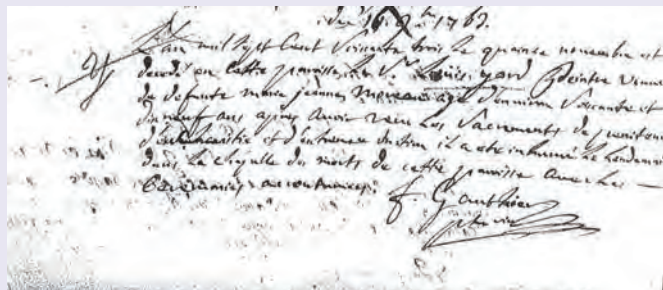 du 16 9bre 1763.
L'an mil sept cent soixante trois le quinze novembre est
decedé en cette paroisse le Sr Louis yard Peintre
de defunte marie jeanne Moreau agé d'environ soixante et
dix neuf ans apres avoir recu les Sacrements de penitence
d'eucharistie et d'extreme onction il a ete inhumé le lendemain
dans la chapelle des morts de cette paroisse avec les
ceremonies accoutumees.
f. Gauthier